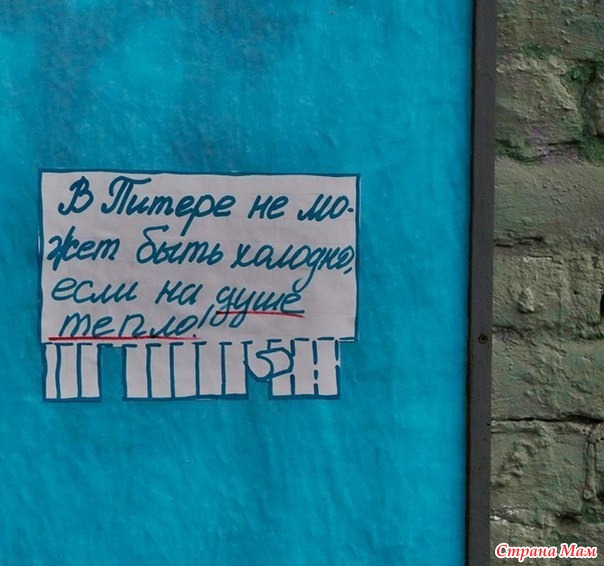 В Питере не мо-
жет быть холодно,
если на душе
тепло!
Страна Мам